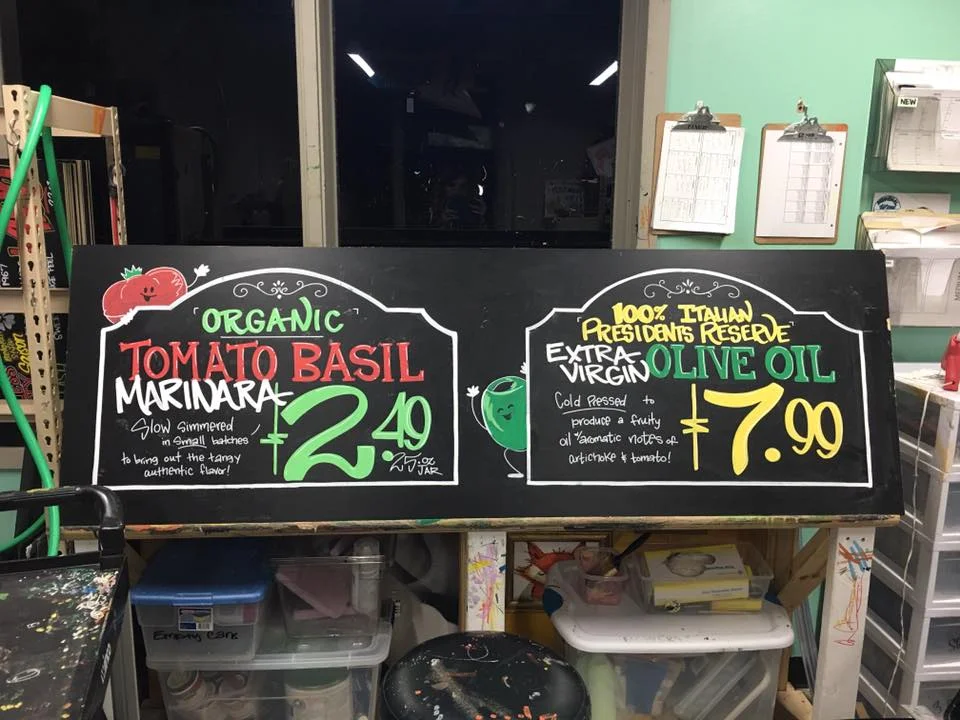 ORGANIC
TOMATO BASIL
MARINARA
Slow simmered
in small batches
to bring out the tangy
authentic flavor!
$2.49
25 oz
JAR
100% ITALIAN
PRESIDENTS RESERVE
EXTRA
VIRGIN OLIVE OIL
Cold Pressed to
produce a fruity
oil w/aromatic notes of
artichoke & tomato!
$7.99
NEW
Empty Cans